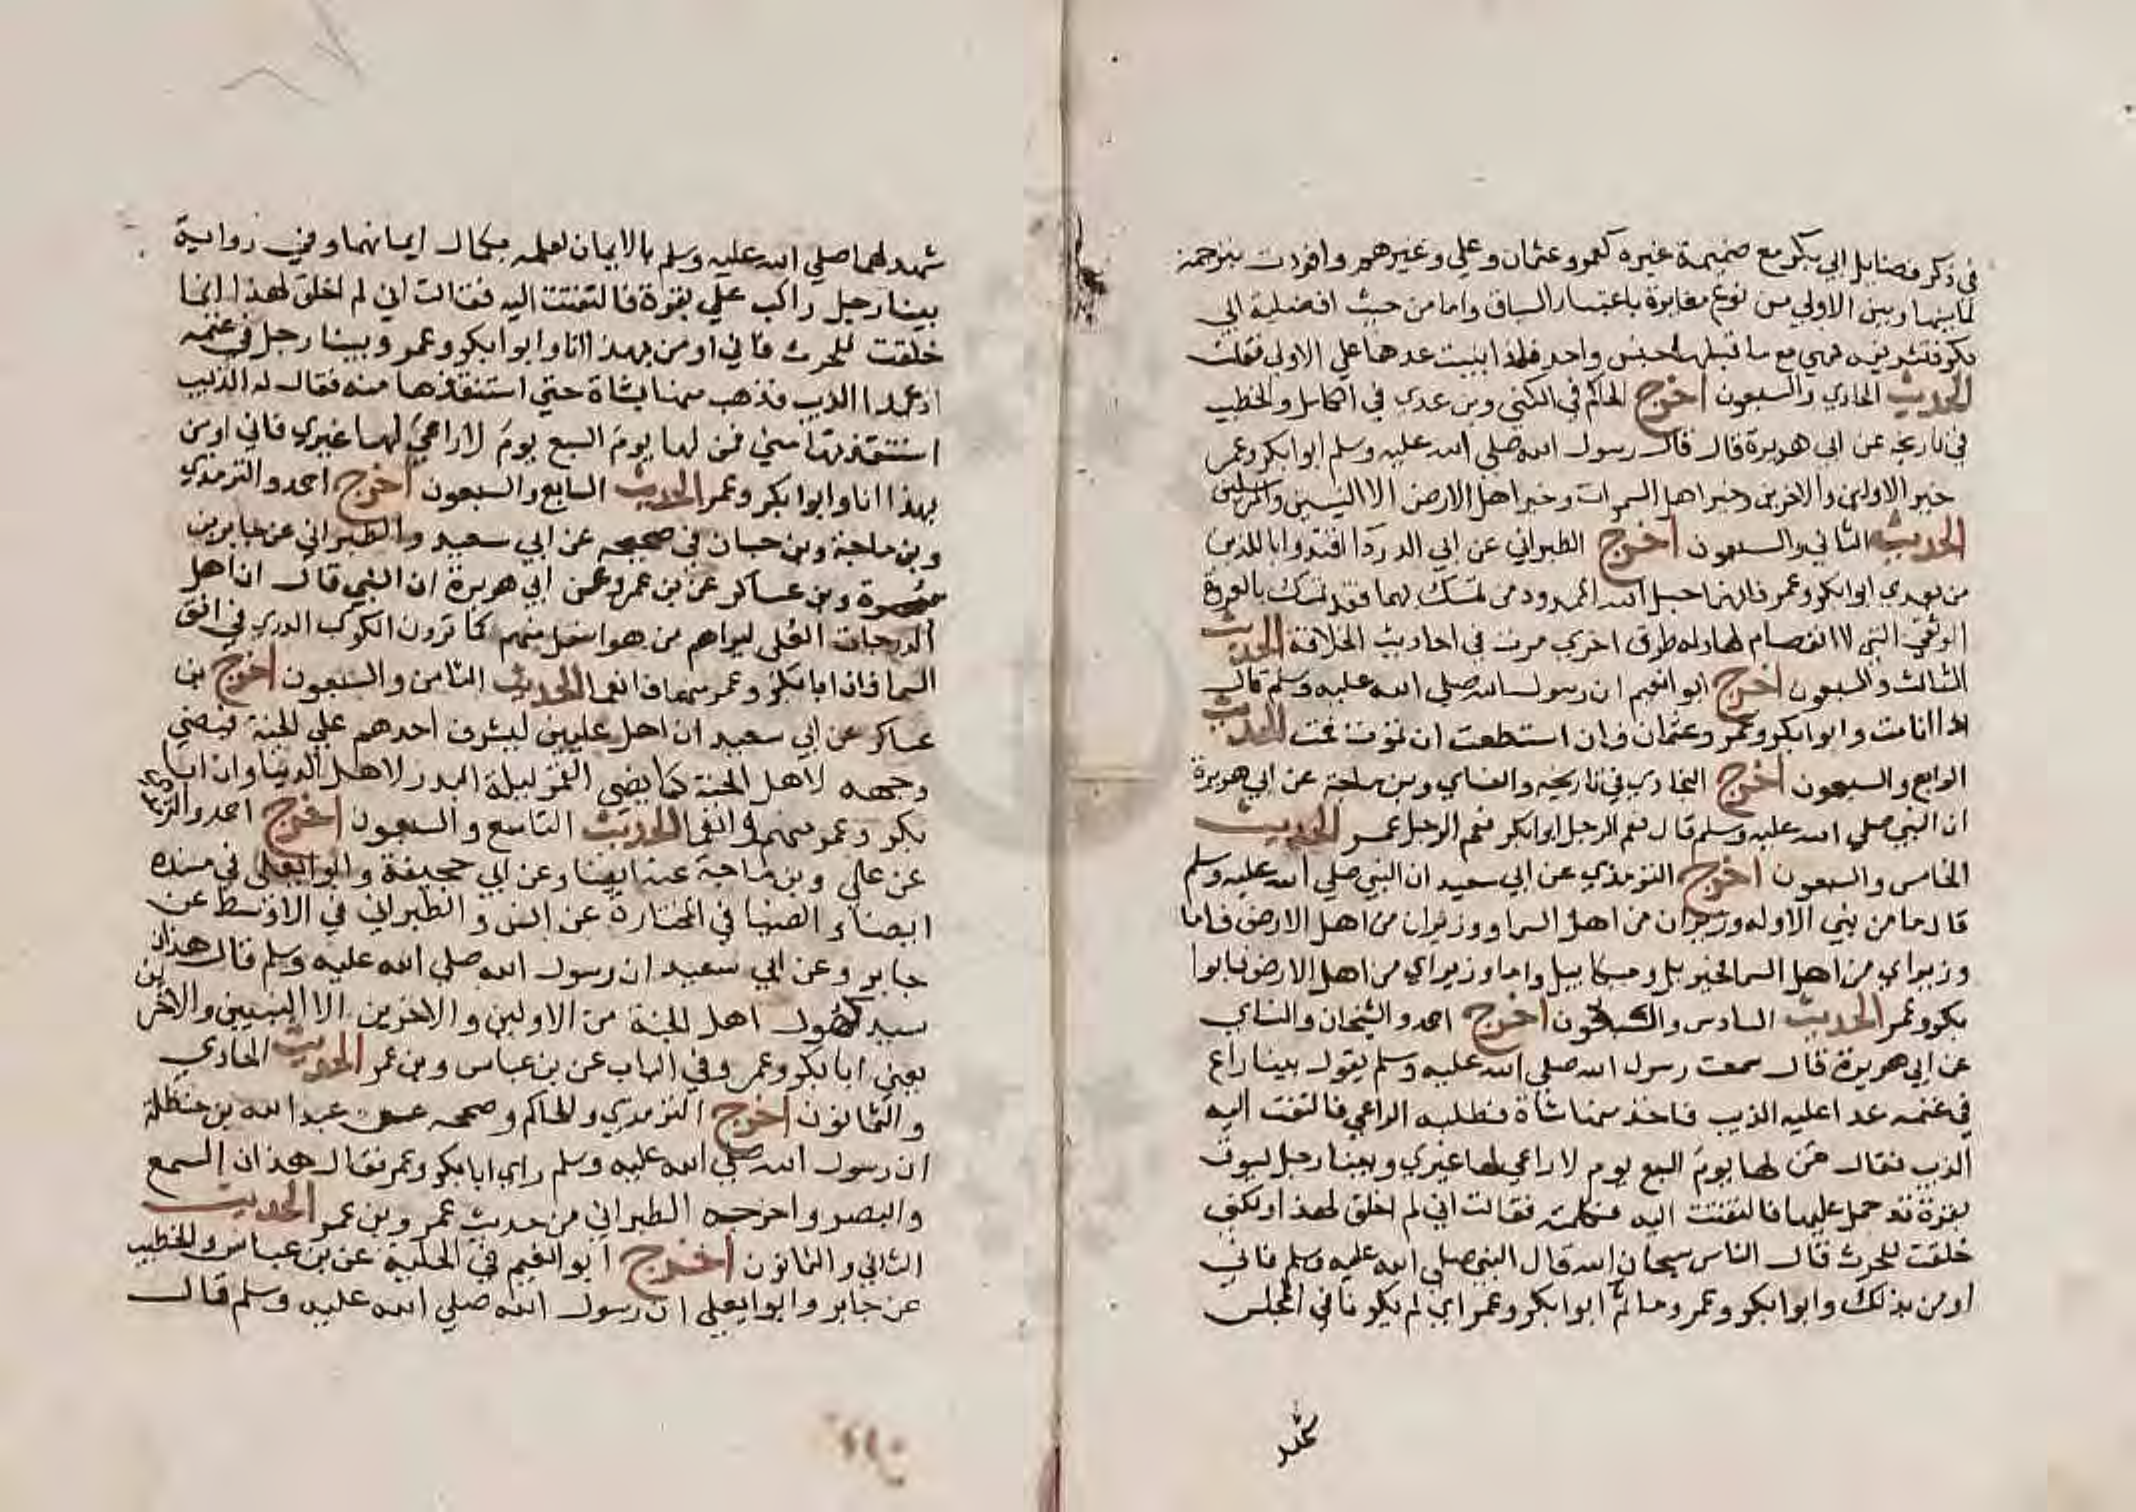 في ذكر فضايل ابي بكر مع ضميمة غيره كعمر وعثمان وعلي وغيرهم وافردت بترجمة
لما بينها وبين الاولي من نوع مغايرة باعتبار السياق واما من حيث افضلية ابي
بكر وتشريفه فهي مع ما قبلها جنس واحد فلذا بنيت عدها علي الاولي فقلت
الحديث الحادي والسبعون اخرج الحاكم في الكني وبن عدي في الكامل والخطيب
في تاريخه عن ابي هريرة قال قال رسول الله صلي الله عليه وسلم ابوا بكر وعمر
خير الاولين والاخرين وخير اهل السموات وخير اهل الارض الا النبيين والمرسلين
الحديث الثاني والسبعون اخرج الطبراني عن ابي الدردا اقتدوا باللذين
من بعدي ابوا بكر وعمر فانهما حبل الله الممدود من تمسك بهما فقد تمسك بالعروة
الوثقي التي لا انفصام لها وله طرق اخري مرت في احاديث الخلافة الحديث
الثالث والسبعون اخرج ابوا نعيم ان رسول الله صلي الله عليه وسلم قال
اذا انا مت وابوا بكر وعمر وعثمان فان استطعت ان تموت فمت الحديث
الرابع والسبعون اخرج البخاري في تاريخه والنساي وبن ماجة عن ابي هريرة
ان النبي صلي الله عليه وسلم قال نعم الرجل ابوا بكر نعم الرجل عمر الحديث
الخامس والسبعون اخرج الترمذي عن ابي سعيد ان النبي صلي الله عليه وسلم
قال ما من نبي الا وله وزيران من اهل السما ووزيران من اهل الارض فاما
وزيراي من اهل السما فجبريل وميكاييل واما وزيراي من اهل الارض فابوا
بكر وعمر الحديث السادس والسبعون اخرج احمد والشيخان والنساي
عن ابي هريرة قال سمعت رسول الله صلي الله عليه وسلم يقول بينا راع
في غنمه عدا عليه الذيب فاخذ منها شاة فطلبه الراعي فالتفت اليه
الذيب فقال من لها يوم السبع يوم لا راعي لها غيري وبينا رجل يسوق
بقرة قد حمل عليها فالتفتت اليه فكلمته فقالت اني لم اخلق لهذا ولكني
خلقت للحرث قال الناس سبحان الله قال النبي صلي الله عليه وسلم فاني
اومن بذلك وابوا بكر وعمر وما ثم ابوا بكر وعمر اي لم يكونا في المجلس
شهد
شهد لهما صلي الله عليه وسلم بالايمان لعلمه بكمال ايمانهما وفي رواية
بينا رجل راكب علي بقرة فالتفتت اليه فقالت اني لم اخلق لهذا انما
خلقت للحرث فاني اومن بهذا انا وابوا بكر وعمر وبينا رجل في غنمه
اذ عدا الذيب فذهب منها بشاة حتي استنقذها منه فقال له الذيب
استنقذتها مني فمن لها يوم السبع يوم لا راعي لها غيري فاني اومن
بهذا انا وابوا بكر وعمر الحديث السابع والسبعون اخرج احمد والترمذي
وبن ماجة وبن حبان في صحيحه عن ابي سعيد والطبراني عن جابر بن
سمرة وبن عساكر عن بن عمر وعن ابي هريرة ان النبي قال ان اهل
الدرجات العلي ليراهم من هو اسفل منهم كما ترون الكوكب الدري في افق
السما وان ابا بكر وعمر منهما وانعما الحديث الثامن والسبعون اخرج بن
عساكر عن ابي سعيد ان اهل عليين ليشرف احدهم علي الجنة فيضي
وجهه لاهل الجنة كما يضي القمر ليلة البدر لاهل الدنيا وان ابا
بكر وعمر منهم وانعما الحديث التاسع والسبعون اخرج احمد والترمذي
عن علي وبن ماجة عنه ايضا وعن ابي جحيفة وابوا يعلي في مسنده
ايضا والضيا في المختارة عن انس والطبراني في الاوسط عن
جابر وعن ابي سعيد ان رسول الله صلي الله عليه وسلم قال هذان
سيدا كهول اهل الجنة من الاولين والاخرين الا النبيين والاخرين
يعني ابا بكر وعمر وفي الباب عن بن عباس وبن عمر الحديث الحادي
والثمانون اخرج الترمذي والحاكم وصححه عن عبد الله بن حنظلة
ان رسول الله صلي الله عليه وسلم راي ابا بكر وعمر فقال هذان السمع
والبصر واخرجه الطبراني من حديث عمر وبن عمر الحديث
الثاني والثمانون اخرج ابوا نعيم في الحلية عن بن عباس والخطيب
عن جابر وابوا يعلي ان رسول الله صلي الله عليه وسلم قال